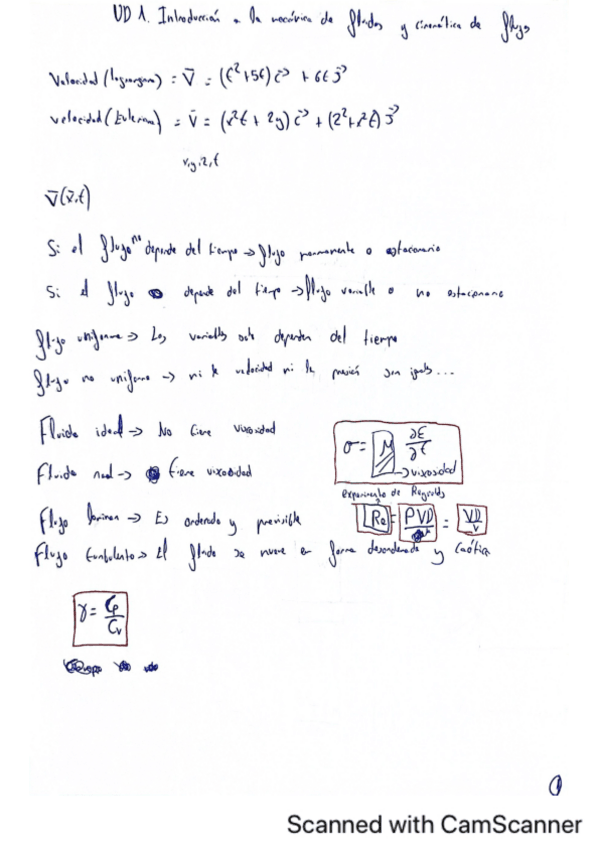 UD 1. Introducción a la mecánica de fluidos y cinemática de flujo
Velocidad (lagrangiana) = V̄ = (t²+5t) i⃗ + 6t j⃗
velocidad (Euleriana) = v̄ = (x²t + 2y) i⃗ + (2²+x²t) j⃗
x,y,z,t
V̄(x̄,t)
Si el flujo no depende del tiempo → flujo permanente o estacionario
Si el flujo depende del tiempo → flujo variable o no estacionario
flujo uniforme → Las variables solo dependen del tiempo
flujo no uniforme → ni la velocidad ni la presión son iguales...
Fluido ideal → No tiene viscosidad
Fluido real → tiene vixosidad
σ = μ ∂ε/∂t
→ vixosidad
experimento de Reynolds
Flujo laminar → Es ordenado y previsible
Re = ρVD/μ = VD/ν
Flujo turbulento → El fluido se mueve en forma desordenada y caótica
γ = Cp/Cv
1
Scanned with CamScanner